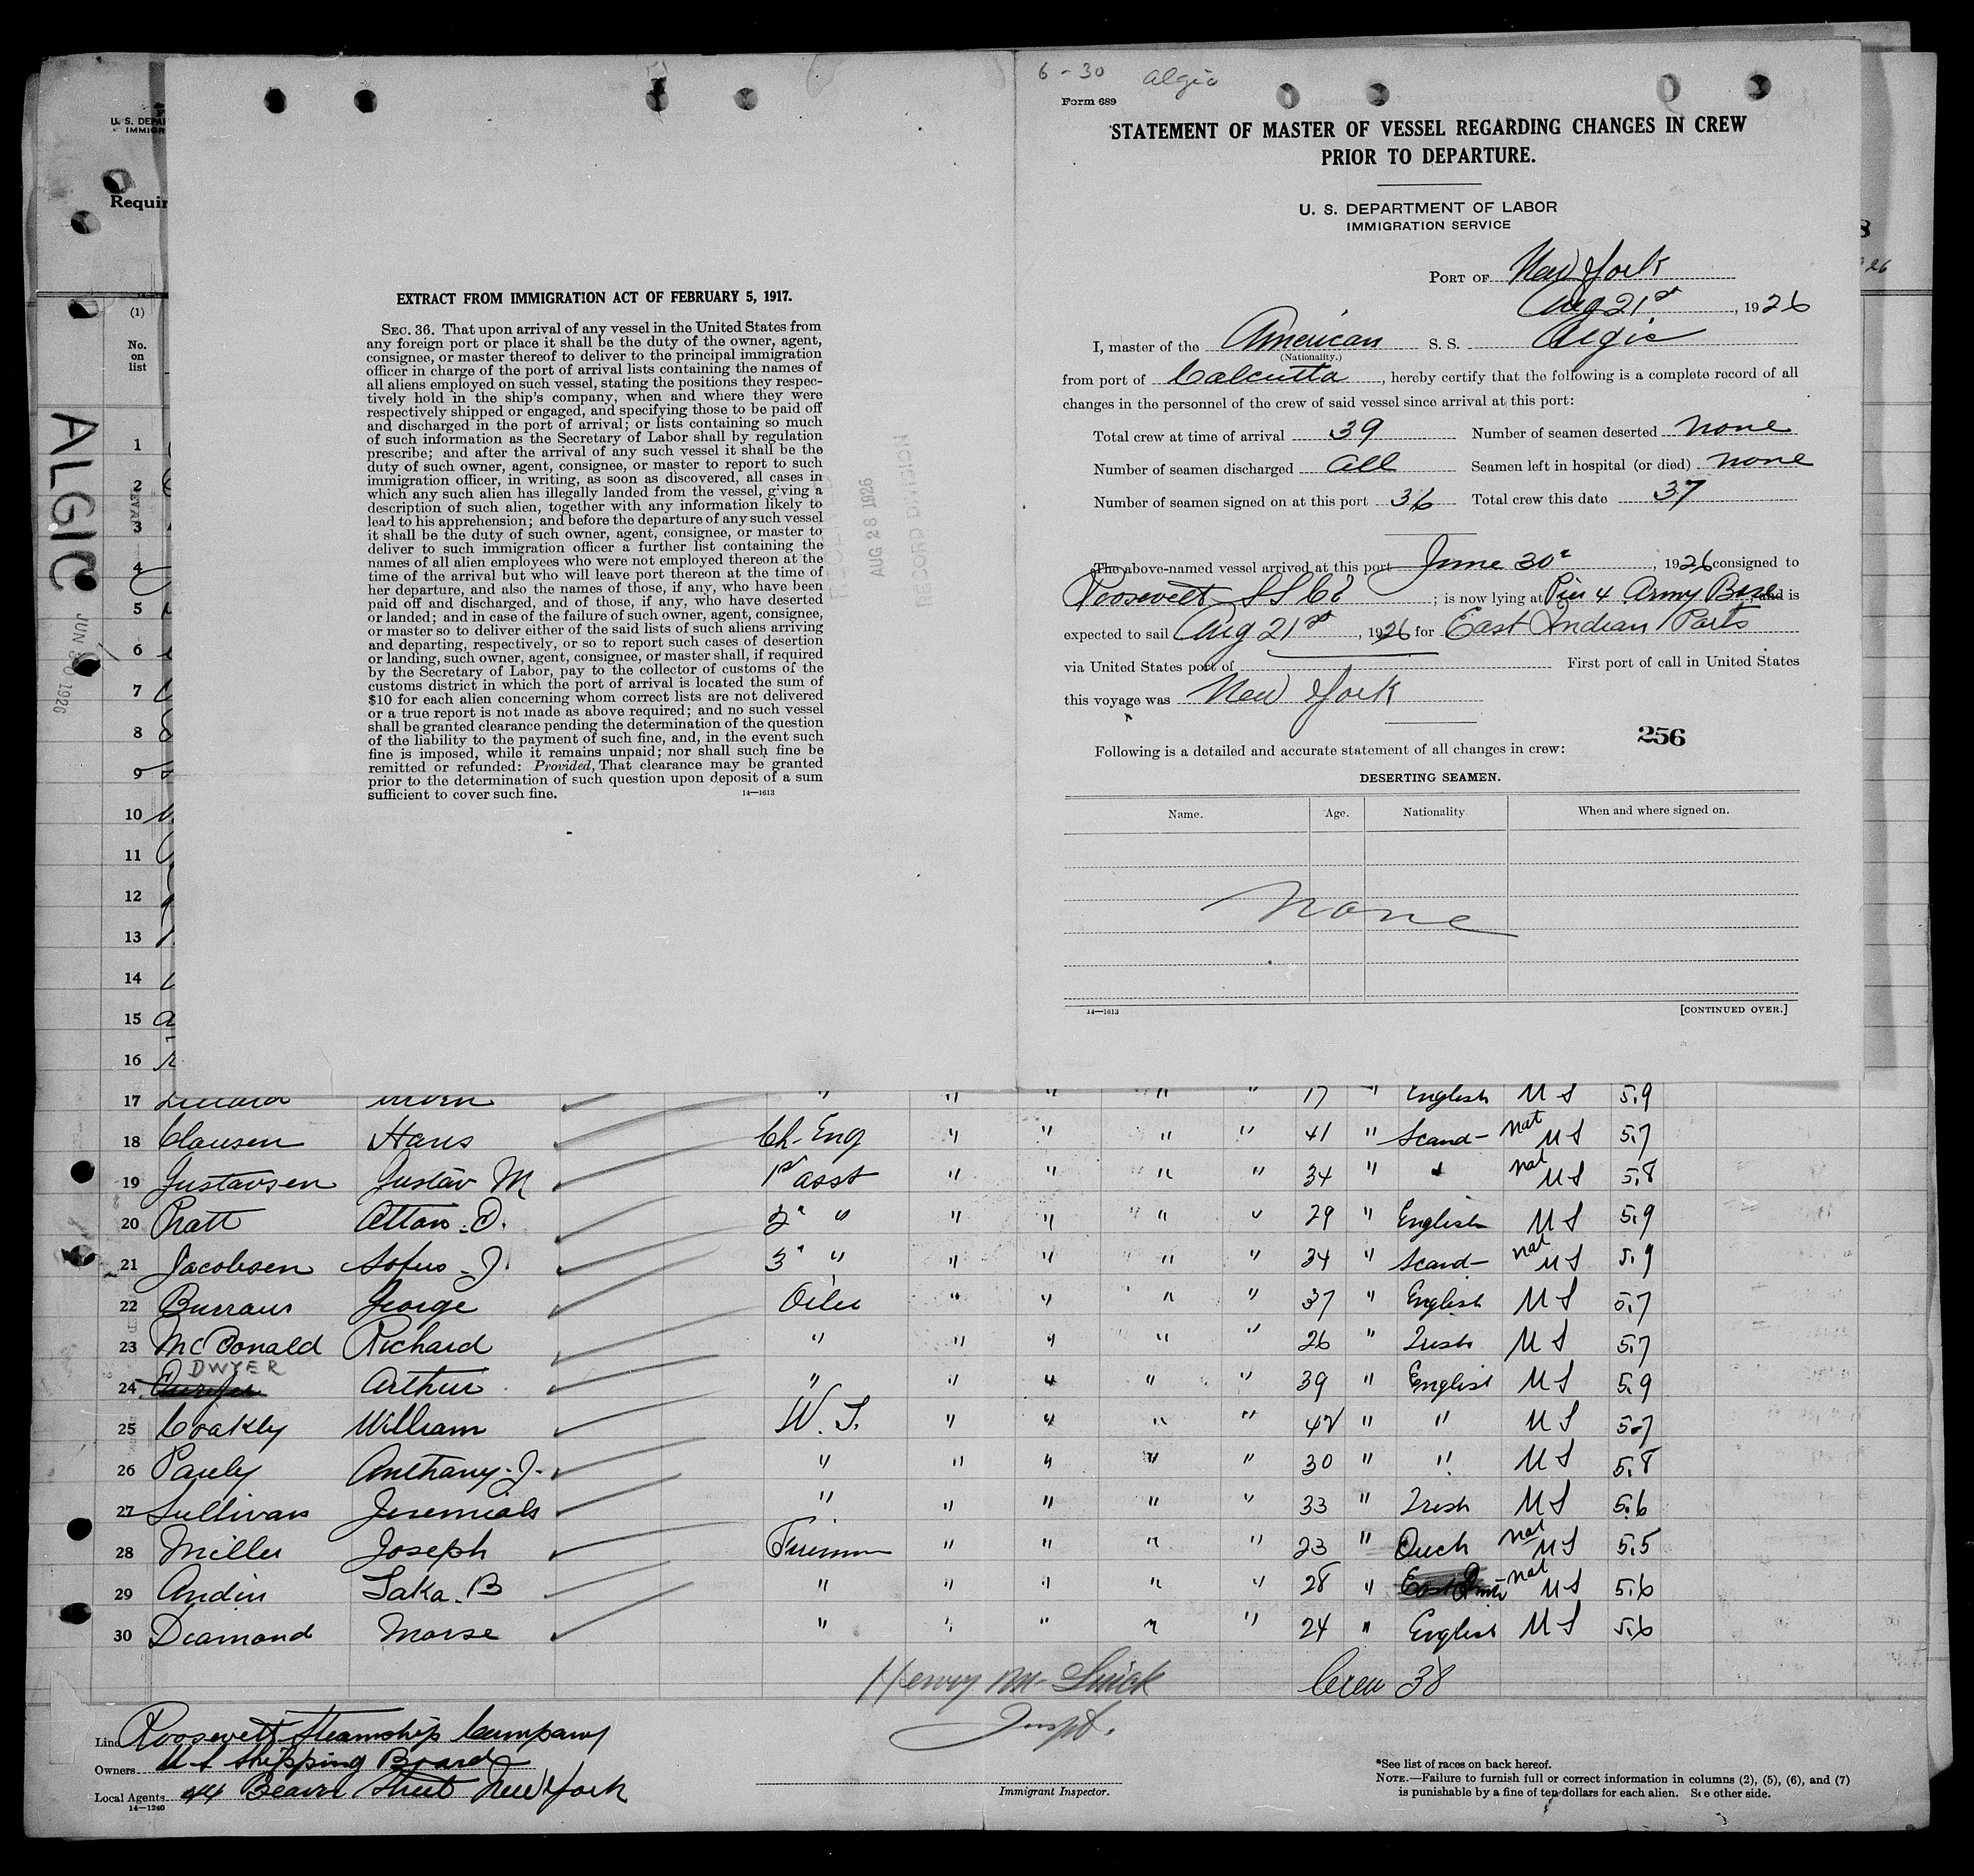 U. S. DEPA
IMMIGR
Requir
(1)
No.
on
list
ALGIC
JUN 30 1926
1
2
3
4
5
6
7
8
9
10
11
12
13
14
15
16
EXTRACT FROM IMMIGRATION ACT OF FEBRUARY 5, 1917.
SEC. 36. That upon arrival of any vessel in the United States from
any foreign port or place it shall be the duty of the owner, agent,
consignee, or master thereof to deliver to the principal immigration
officer in charge of the port of arrival lists containing the names of
all aliens employed on such vessel, stating the positions they respec-
tively hold in the ship's company, when and where they were
respectively shipped or engaged, and specifying those to be paid off
and discharged in the port of arrival; or lists containing so much
of such information as the Secretary of Labor shall by regulation
prescribe; and after the arrival of any such vessel it shall be the
duty of such owner, agent, consignee, or master to report to such
immigration officer, in writing, as soon as discovered, all cases in
which any such alien has illegally landed from the vessel, giving a
description of such alien, together with any information likely to
lead to his apprehension; and before the departure of any such vessel
it shall be the duty of such owner, agent, consignee, or master to
deliver to such immigration officer a further list containing the
names of all alien employees who were not employed thereon at the
time of the arrival but who will leave port thereon at the time of
her departure, and also the names of those, if any, who have been
paid off and discharged, and of those, if any, who have deserted
or landed; and in case of the failure of such owner, agent, consignee,
or master so to deliver either of the said lists of such aliens arriving
and departing, respectively, or so to report such cases of desertion
or landing, such owner, agent, consignee, or master shall, if required
by the Secretary of Labor, pay to the collector of customs of the
customs district in which the port of arrival is located the sum of
$10 for each alien concerning whom correct lists are not delivered
or a true report is not made as above required; and no such vessel
shall be granted clearance pending the determination of the question
of the liability to the payment of such fine, and, in the event such
fine is imposed, while it remains unpaid; nor shall such fine be
remitted or refunded: Provided, That clearance may be granted
prior to the determination of such question upon deposit of a sum
sufficient to cover such fine.
14—1613
AUG 28 1926
RECORD DIVISION
6 - 30 Algic
Form 689
STATEMENT OF MASTER OF VESSEL REGARDING CHANGES IN CREW
PRIOR TO DEPARTURE.
U. S. DEPARTMENT OF LABOR
IMMIGRATION SERVICE
PORT OF New York
Aug 21st, 1926
I, master of the American S. S. Algic
(Nationality.)
from port of Calcutta, hereby certify that the following is a complete record of all
changes in the personnel of the crew of said vessel since arrival at this port:
Total crew at time of arrival 39 Number of seamen deserted none
Number of seamen discharged all Seamen left in hospital (or died) none
Number of seamen signed on at this port 36 Total crew this date 37
The above-named vessel arrived at this port June 30", 1926 consigned to
Roosevelt SS Co; is now lying at Pier 4 Army Base, and is
expected to sail Aug 21st, 1926 for East Indian Ports
via United States port of First port of call in United States
this voyage was New York
256
Following is a detailed and accurate statement of all changes in crew:
DESERTING SEAMEN.
Name. Age. Nationality When and where signed on.
none
14—1613 [CONTINUED OVER.]
17 " " " " " 17 " English U S 5.9
18 Clausen Hans Ch. Eng " " " " 41 " Scand- nat U S 5.7
19 Gustavsen Gustav M 1st asst " " " " 34 " " nat U S 5.8
20 Pratt Alton D. 2" " " " " " 29 " English U S 5.9
21 Jacobsen Sofus J. 3" " " " " " 34 " Scand- nat U S 5.9
22 Burraus George Oiler " " " " 37 " English U S 5.7
23 McDonald Richard " " " " " 26 " Irish U S 5.7
24 DWYER Arthur " " " " " 39 " English U S 5.9
25 Coakley William W. T. " " " " 42 " " U S 5.7
26 Pauly Anthany J. " " " " " 30 " " U S 5.8
27 Sullivan Jeremiah " " " " " 33 " Irish U S 5.6
28 Miller Joseph Fireman " " " " 23 " Duch nat U S 5.5
29 Andin Laka. B " " " " " 28 " nat U S 5.6
30 Diamond Morse " " " " " 24 " English U S 5.6
Crew 38
Inspt.
Line Roosevelt Steamship Company
Owners U S Shipping Board
Local Agents 44 Beaver Street New York
14—1240
Immigrant Inspector.
*See list of races on back hereof.
NOTE.—Failure to furnish full or correct information in columns (2), (5), (6), and (7)
is punishable by a fine of ten dollars for each alien. See other side.